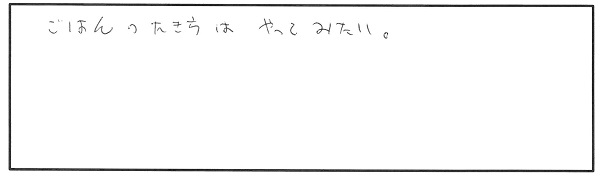 ごはんのたき方は やってみたい。